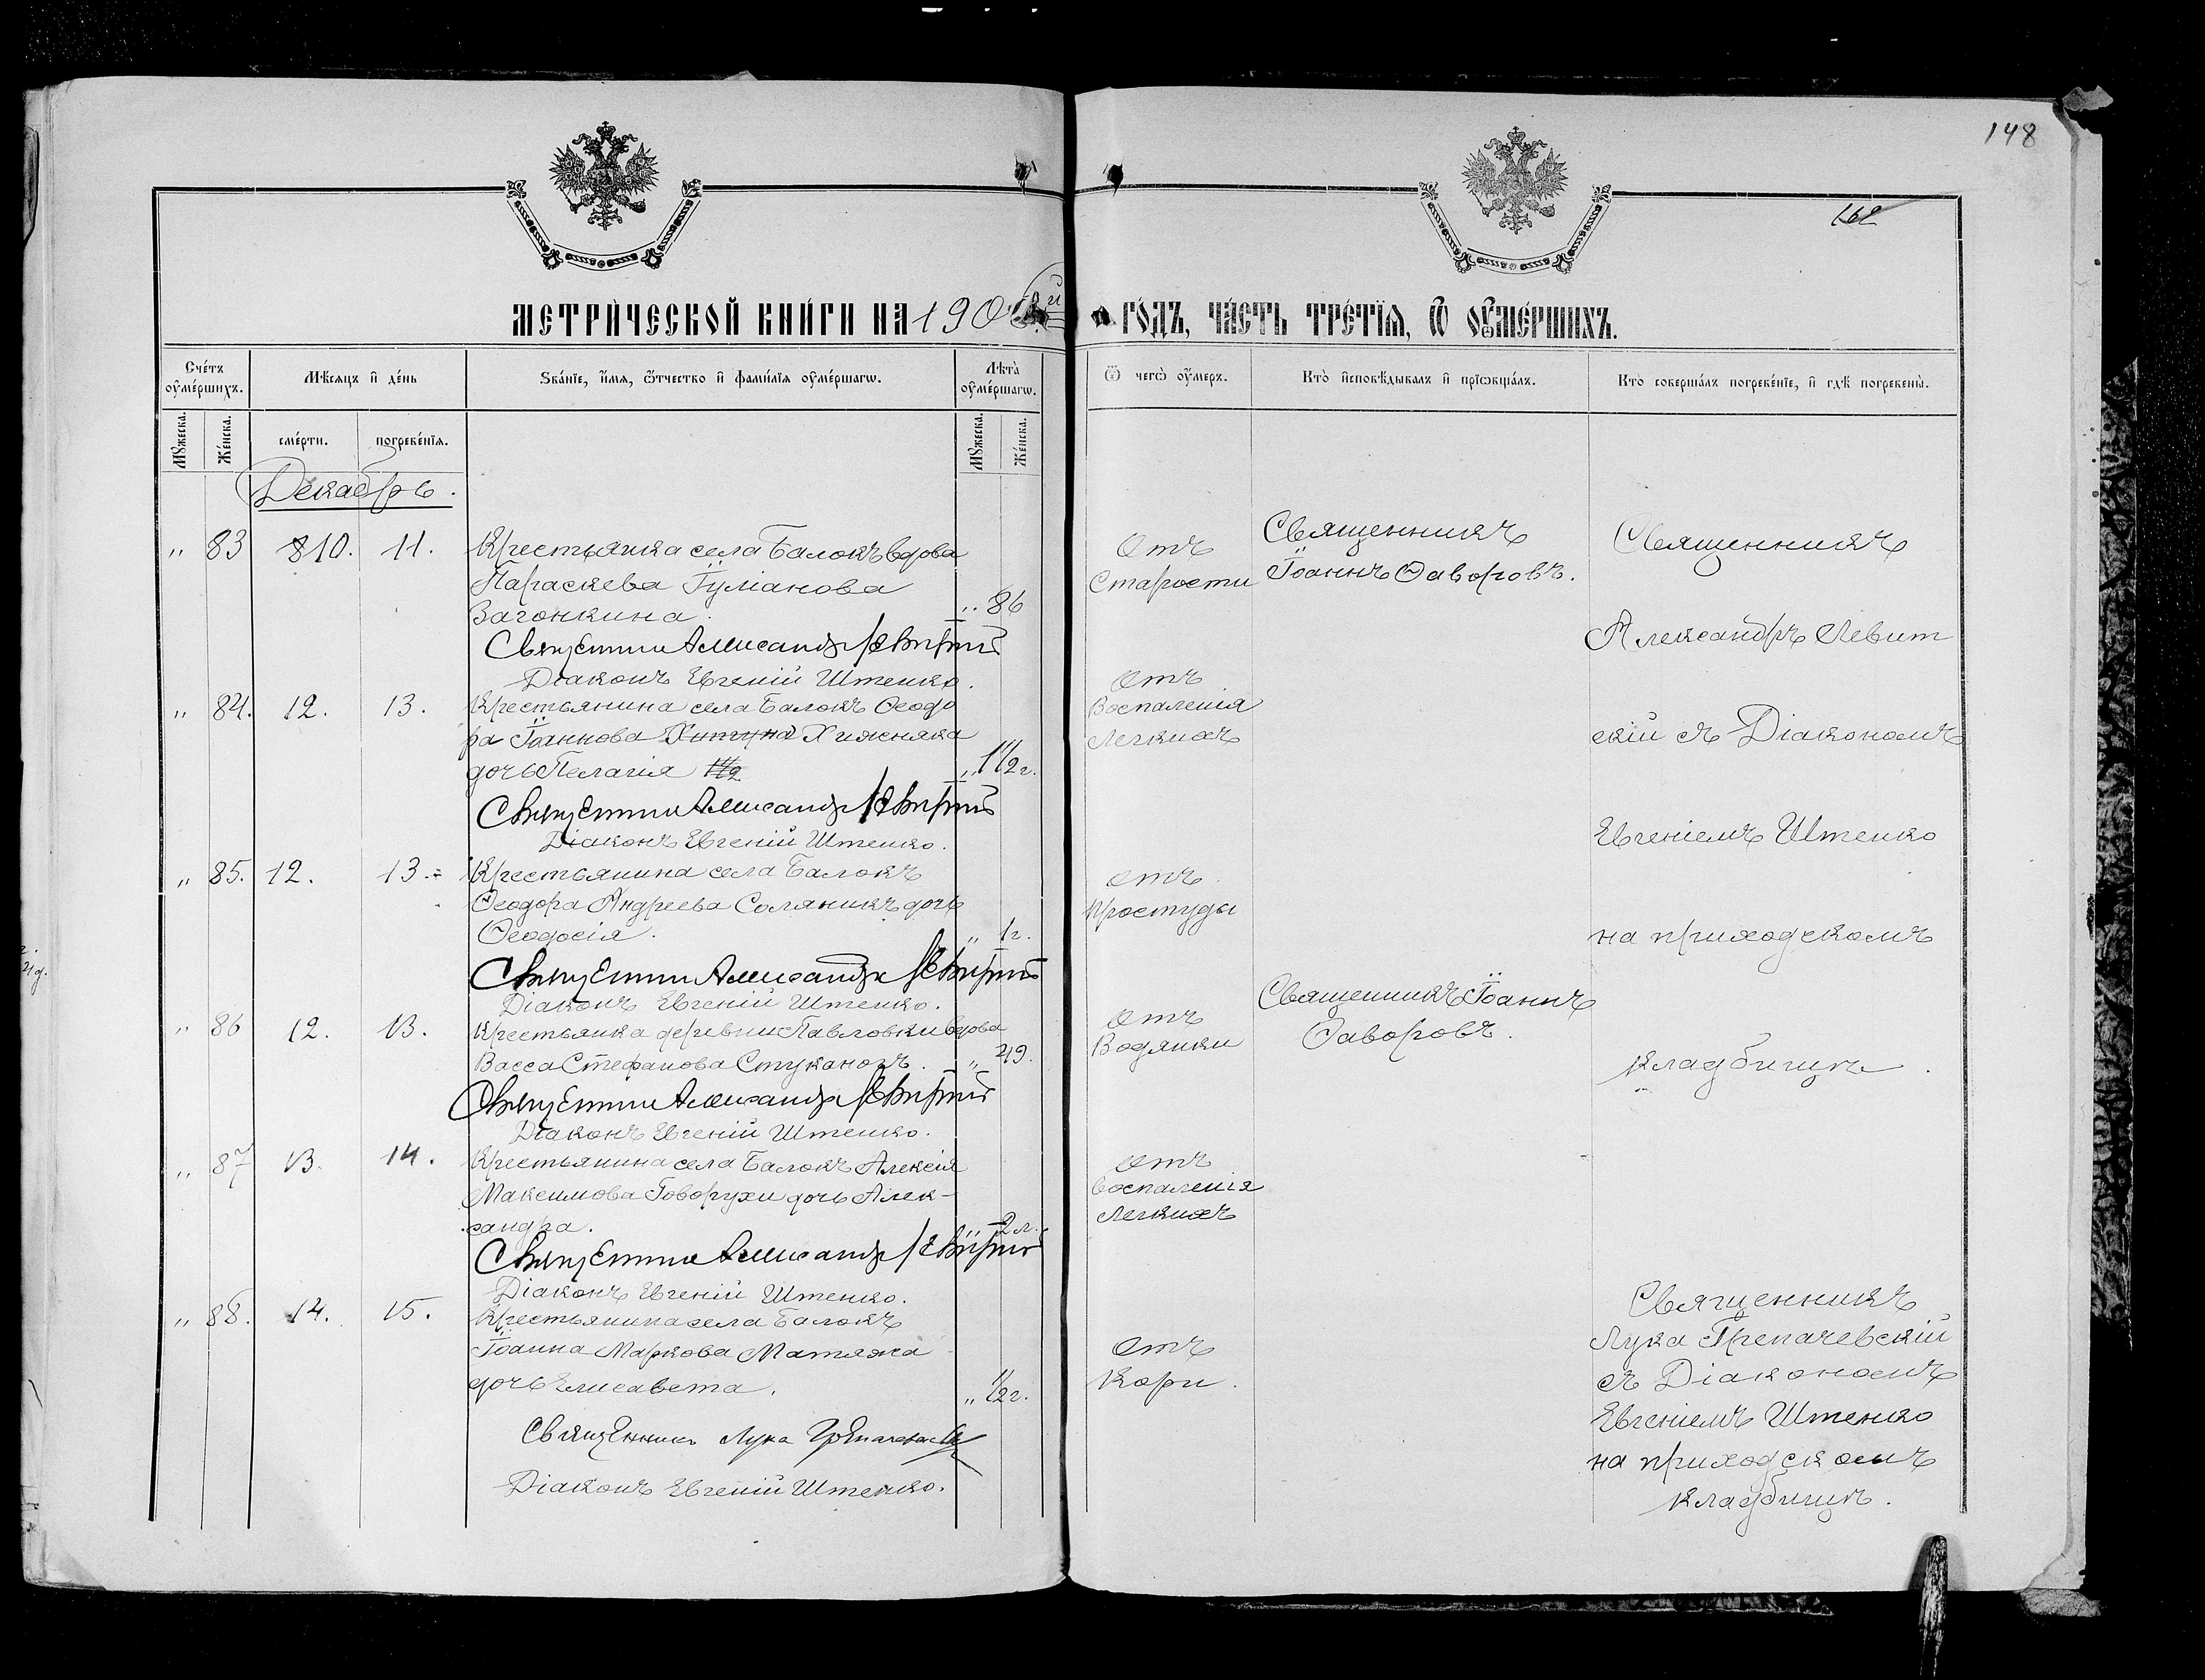 148
162
МЕТРИ́ЧЕСКОЙ КНИ́ГИ НА 190
ГО́ДЪ, ЧА́СТЬ ТРЕ́ТЇѦ, Ѿ ОУ҆МЕ́РШИХЪ.
Сче́тъ оу҆ме́ршихъ.
Мѣ́сѧцъ и҆ де́нь
Ѕва́нїе, и҆́мѧ, ѻ҆́тчество и҆ фами́лїѧ оу҆ме́ршагѡ.
Лѣ́та̀ оу҆ме́ршагѡ.
Ѿ чегѡ̀ оу҆́меръ.
Кто̀ и҆сповѣ́дывалъ и҆ прїѡбща́лъ.
Кто̀ соверша́лъ погребе́нїе, и҆ гдѣ̀ погребены̀.
Мꙋ́жеска.
Же́нска.
сме́рти.
погребе́нїѧ.
Мꙋ́жеска.
Же́нска.
Декабрь.
„ 83 810. 11. Крестьянка села Балокъ вдова
Параскева Гуліанова
Загонкина. „ 86
Священникъ Александръ Левитскій
Діаконъ Евгеній Штенко.
Отъ
Старости
Священникъ
Іоаннъ Ѳаворовъ.
Священникъ
Александръ Левит
скій съ Діакономъ
Евгеніемъ Штенко
на приходскомъ
кладбищѣ.
„ 84. 12. 13. Крестьянина села Балокъ Ѳеодо
ра Іоаннова Хижняка
дочь Пелагія 1 1/2 „ 1 1/2 г.
Священникъ Александръ Левитскій
Діаконъ Евгеній Штенко.
Отъ
Воспаленія
Легкихъ
„ 85. 12. 13. Крестьянина села Балокъ
Ѳеодора Андреева Соляникъ дочь
Ѳеодосія. „ 1 г.
Священникъ Александръ Левитскій
Діаконъ Евгеній Штенко.
Отъ
простуды
„ 86 12. 13. Крестьянка деревни Павловки вдова
Васса Стефанова Стуканогъ. „ 49.
Священникъ Александръ Левитскій
Діаконъ Евгеній Штенко.
Отъ
Водянки
Священникъ Іоаннъ
Ѳаворовъ.
„ 87 13. 14. Крестьянина села Балокъ Алексія
Максимова Говорухи дочь Алек-
сандра. „ 2 л.
Священникъ Александръ Левитскій
Діаконъ Евгеній Штенко.
Отъ
воспаленія
Легкихъ
„ 88. 14. 15. Крестьянина села Балокъ
Іоанна Маркова Матяжа
дочь Елисавета. „ 1/2 г.
Священникъ Лука Грепачевскій
Діаконъ Евгеній Штенко.
Отъ
Кори.
Священникъ
Лука Грепачевскій
съ Діакономъ
Евгеніемъ Штенко
на приходскомъ
кладбищѣ.